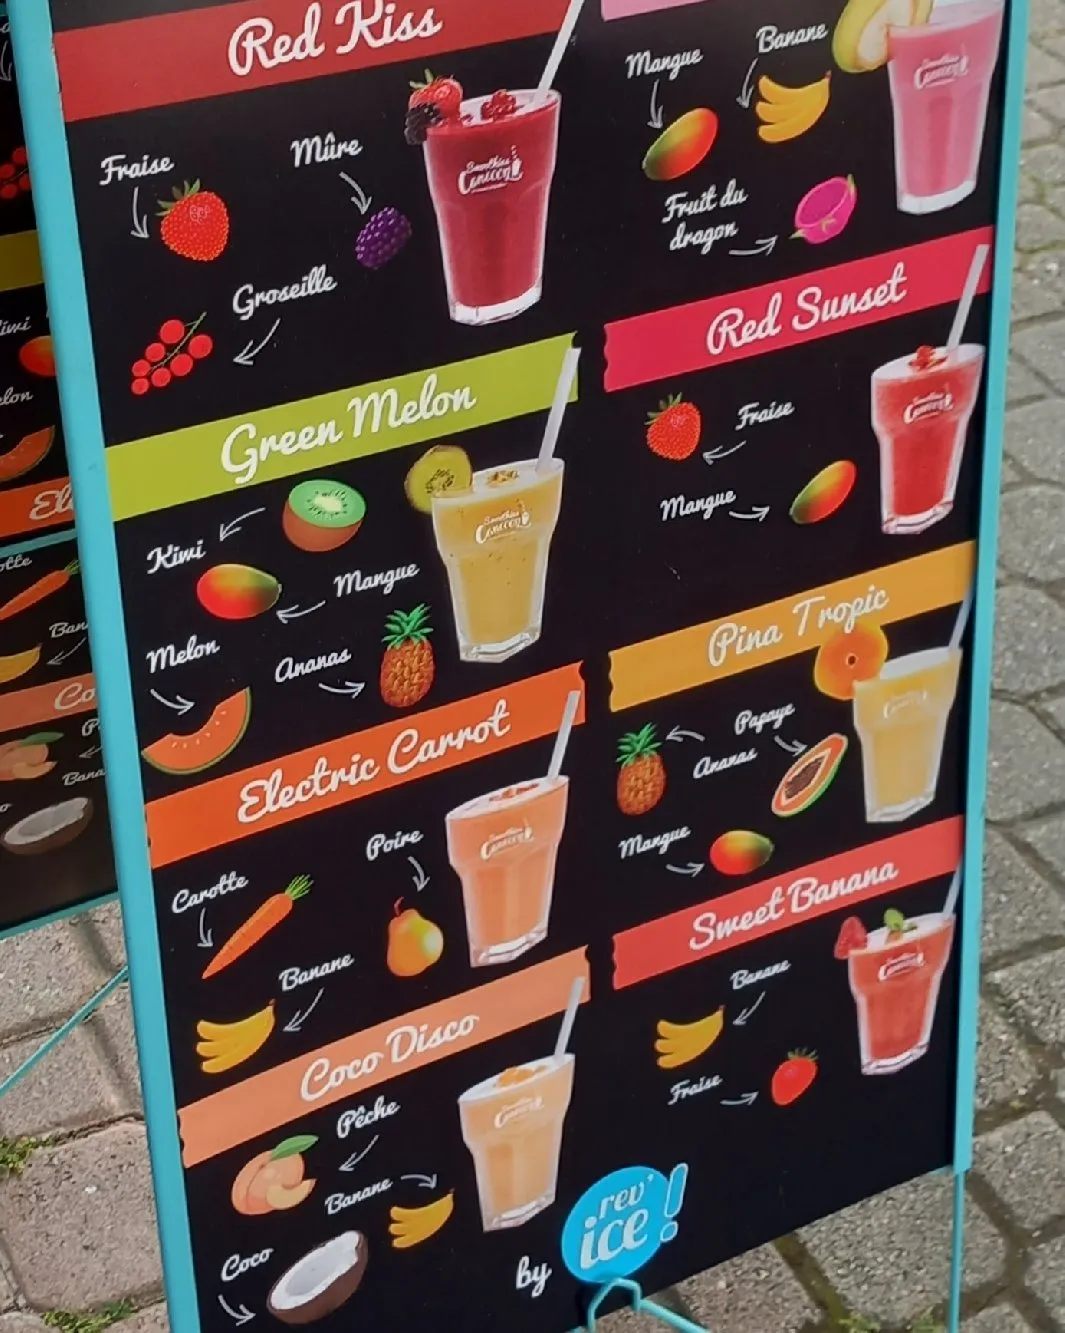 Red Kiss
Fraise
Mûre
Groseille
Green Melon
Kiwi
Mangue
Melon
Ananas
Electric Carrot
Carotte
Poire
Banane
Coco Disco
Pêche
Banane
Coco
Mangue
Banane
Fruit du
dragon
Red Sunset
Fraise
Mangue
Pina Tropic
Papaye
Ananas
Mangue
Sweet Banana
Banane
Fraise
by
rev'
ice!